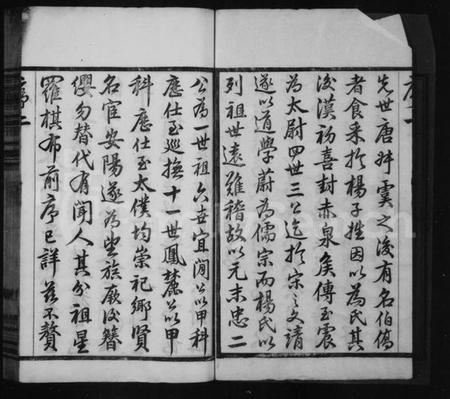 序一
先世唐叔虞之後有名伯僑
者食采於楊子姓因以為氏其
後漢初喜封赤泉矦傳至震
為太尉四世三公迄於宋之文靖
遂以道學蔚為儒宗而楊氏以
列祖世遠難稽故以元末忠二
公為一世祖六世宜閒公以甲科
歷仕至巡撫十一世鳳麓公以甲
科歷仕至太僕均崇祀鄉賢
名宦安陽遂為望族厥後簪
纓勿替代有聞人其分祖星
羅棋布前序已詳茲不贅
序二